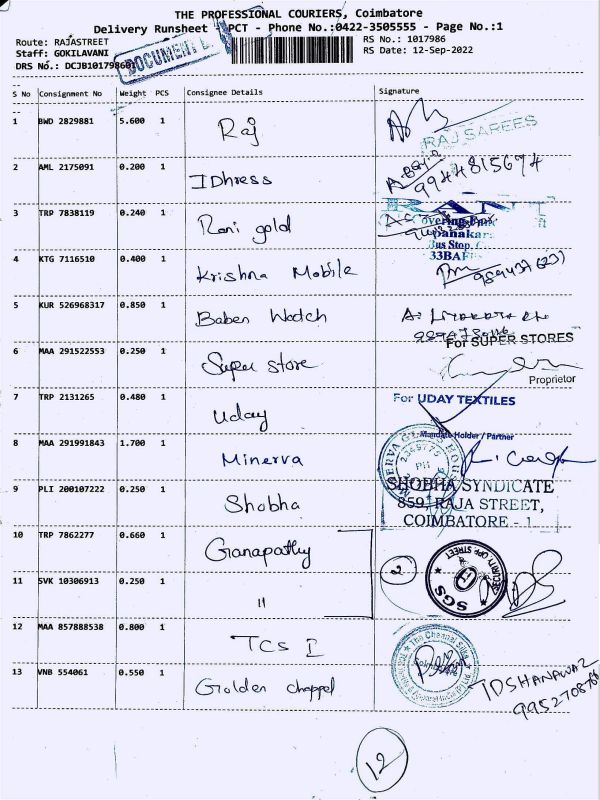 THE PROFESSIONAL COURIERS, Coimbatore
Delivery Runsheet PCT - Phone No.:0422-3505555 - Page No.:1
Route: RAJASTREET
RS No.: 1017986
Staff: GOKILAVANI
RS Date: 12-Sep-2022
DRS No.: DCJB101798601
DOCUMENT
S No Consignment No Weight PCS Consignee Details Signature
1 BWD 2829881 5.600 1 Raj
RAJ SAREES
2 AML 2175091 0.200 1 IDhress
9944815674
3 TRP 7838119 0.240 1 Rani gold
Covering
panakar
Bus Stop,
33BAF
4 KTG 7116510 0.400 1 Krishna Mobile
5 KUR 526968317 0.850 1 Baben Watch
6 MAA 291522553 0.250 1 Super store
For SUPER STORES
Proprietor
7 TRP 2131265 0.480 1 Uday
For UDAY TEXTILES
Mandate Holder / Partner
8 MAA 291991843 1.700 1 Minerva
9 PLI 200107222 0.250 1 Shobha
SHOBHA SYNDICATE
859, RAJA STREET,
COIMBATORE - 1
10 TRP 7862277 0.660 1 Ganapathy
11 SVK 10306913 0.250 1 "
2
SGS
12 MAA 857888538 0.800 1 TCS I
The Chennai Silks
13 VNB 554061 0.550 1 Golden chappel
12